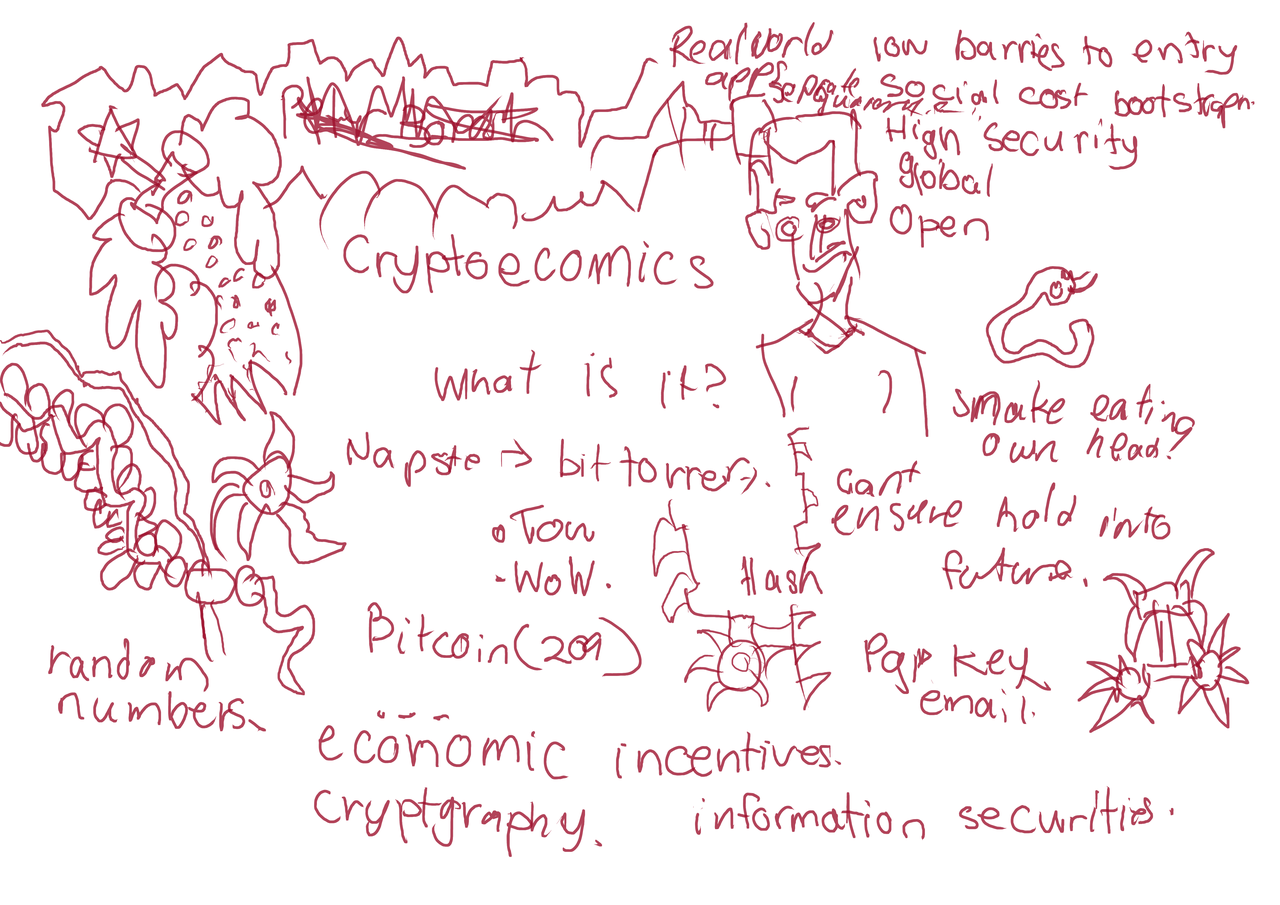 Real World low barries to entry
apps Seperate social cost bootstrapn.
High security
global
Open
Cryptoecomics
What is it?
smake eating
own head?
Napste → bittorrer→.
cant
ensure hold into
future.
•Tow
-WoW.
Hash
Bitcoin(209)
Pgp Key
email.
random
numbers.
economic incentives.
Cryptgraphy. information securities.